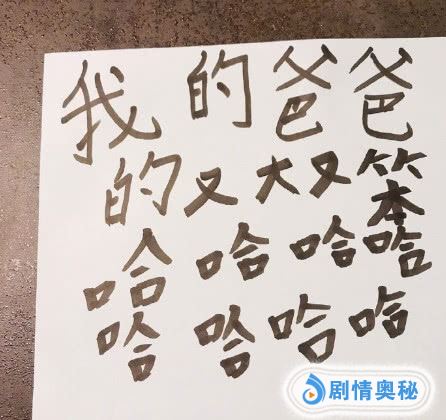 我的爸爸
的又大又笨
哈哈哈哈
哈哈哈哈
剧情奥秘